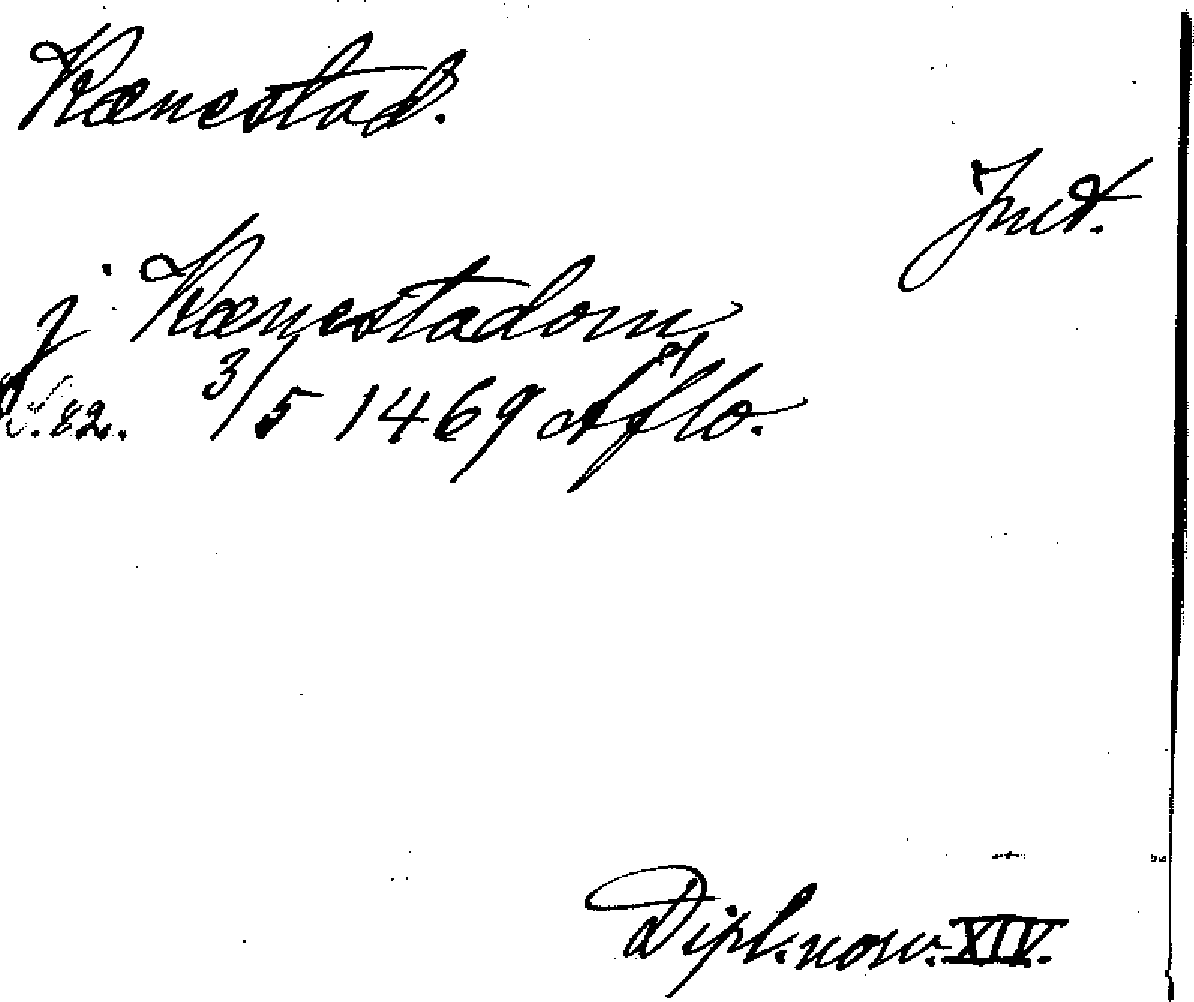 Kænestad.
Jmt.
j Kænestadom
S. 82. 3/5 1469 Aflo.
Dipl. norv. XIV.